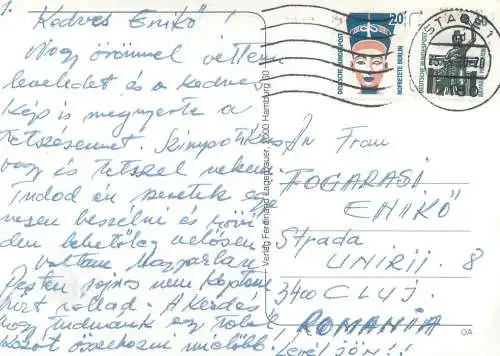 1.
Kedves Enikő!
Nagy örömmel vettem
leveledet és a kedves
kép is megnyerte a
tetszésemet. Szimpatikus
vagy és tetszel nekem.
Tudod én szeretek
beszélni és rövi
den lehetőleg velősen
voltam Magyarban
Pesten sajnos nem kaptam
hírt rollad. A kérdés
hogy tudnánk egy
össehozni mielőbb!
Verlag Ferdinand Lagerbauer, 2000 Hamburg 60
20
DEUTSCHE BUNDESPOST
NOFRETETE BERLIN
60
DEUTSCHE BUNDESPOST
STADE 1
An Frau
FOGARASI
ENIKŐ
Strada
UNIRII. 8
3400 CLUJ.
ROMANIA
Levél jön!!
OA